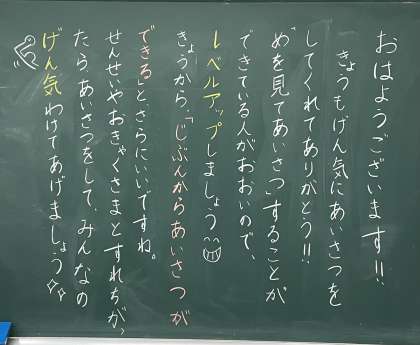 おはようございます!!
きょうもげん気にあいさつを
してくれてありがとう!!
"めを見てあいさつ"することが
できている人がおおいので、
レベルアップしましょう
きょうから、「じぶんからあいさつが
できる」とさらにいいですね。
せんせいやおきゃくさまとすれちがっ
たらあいさつをして、みんなの
げん気わけてあげましょう